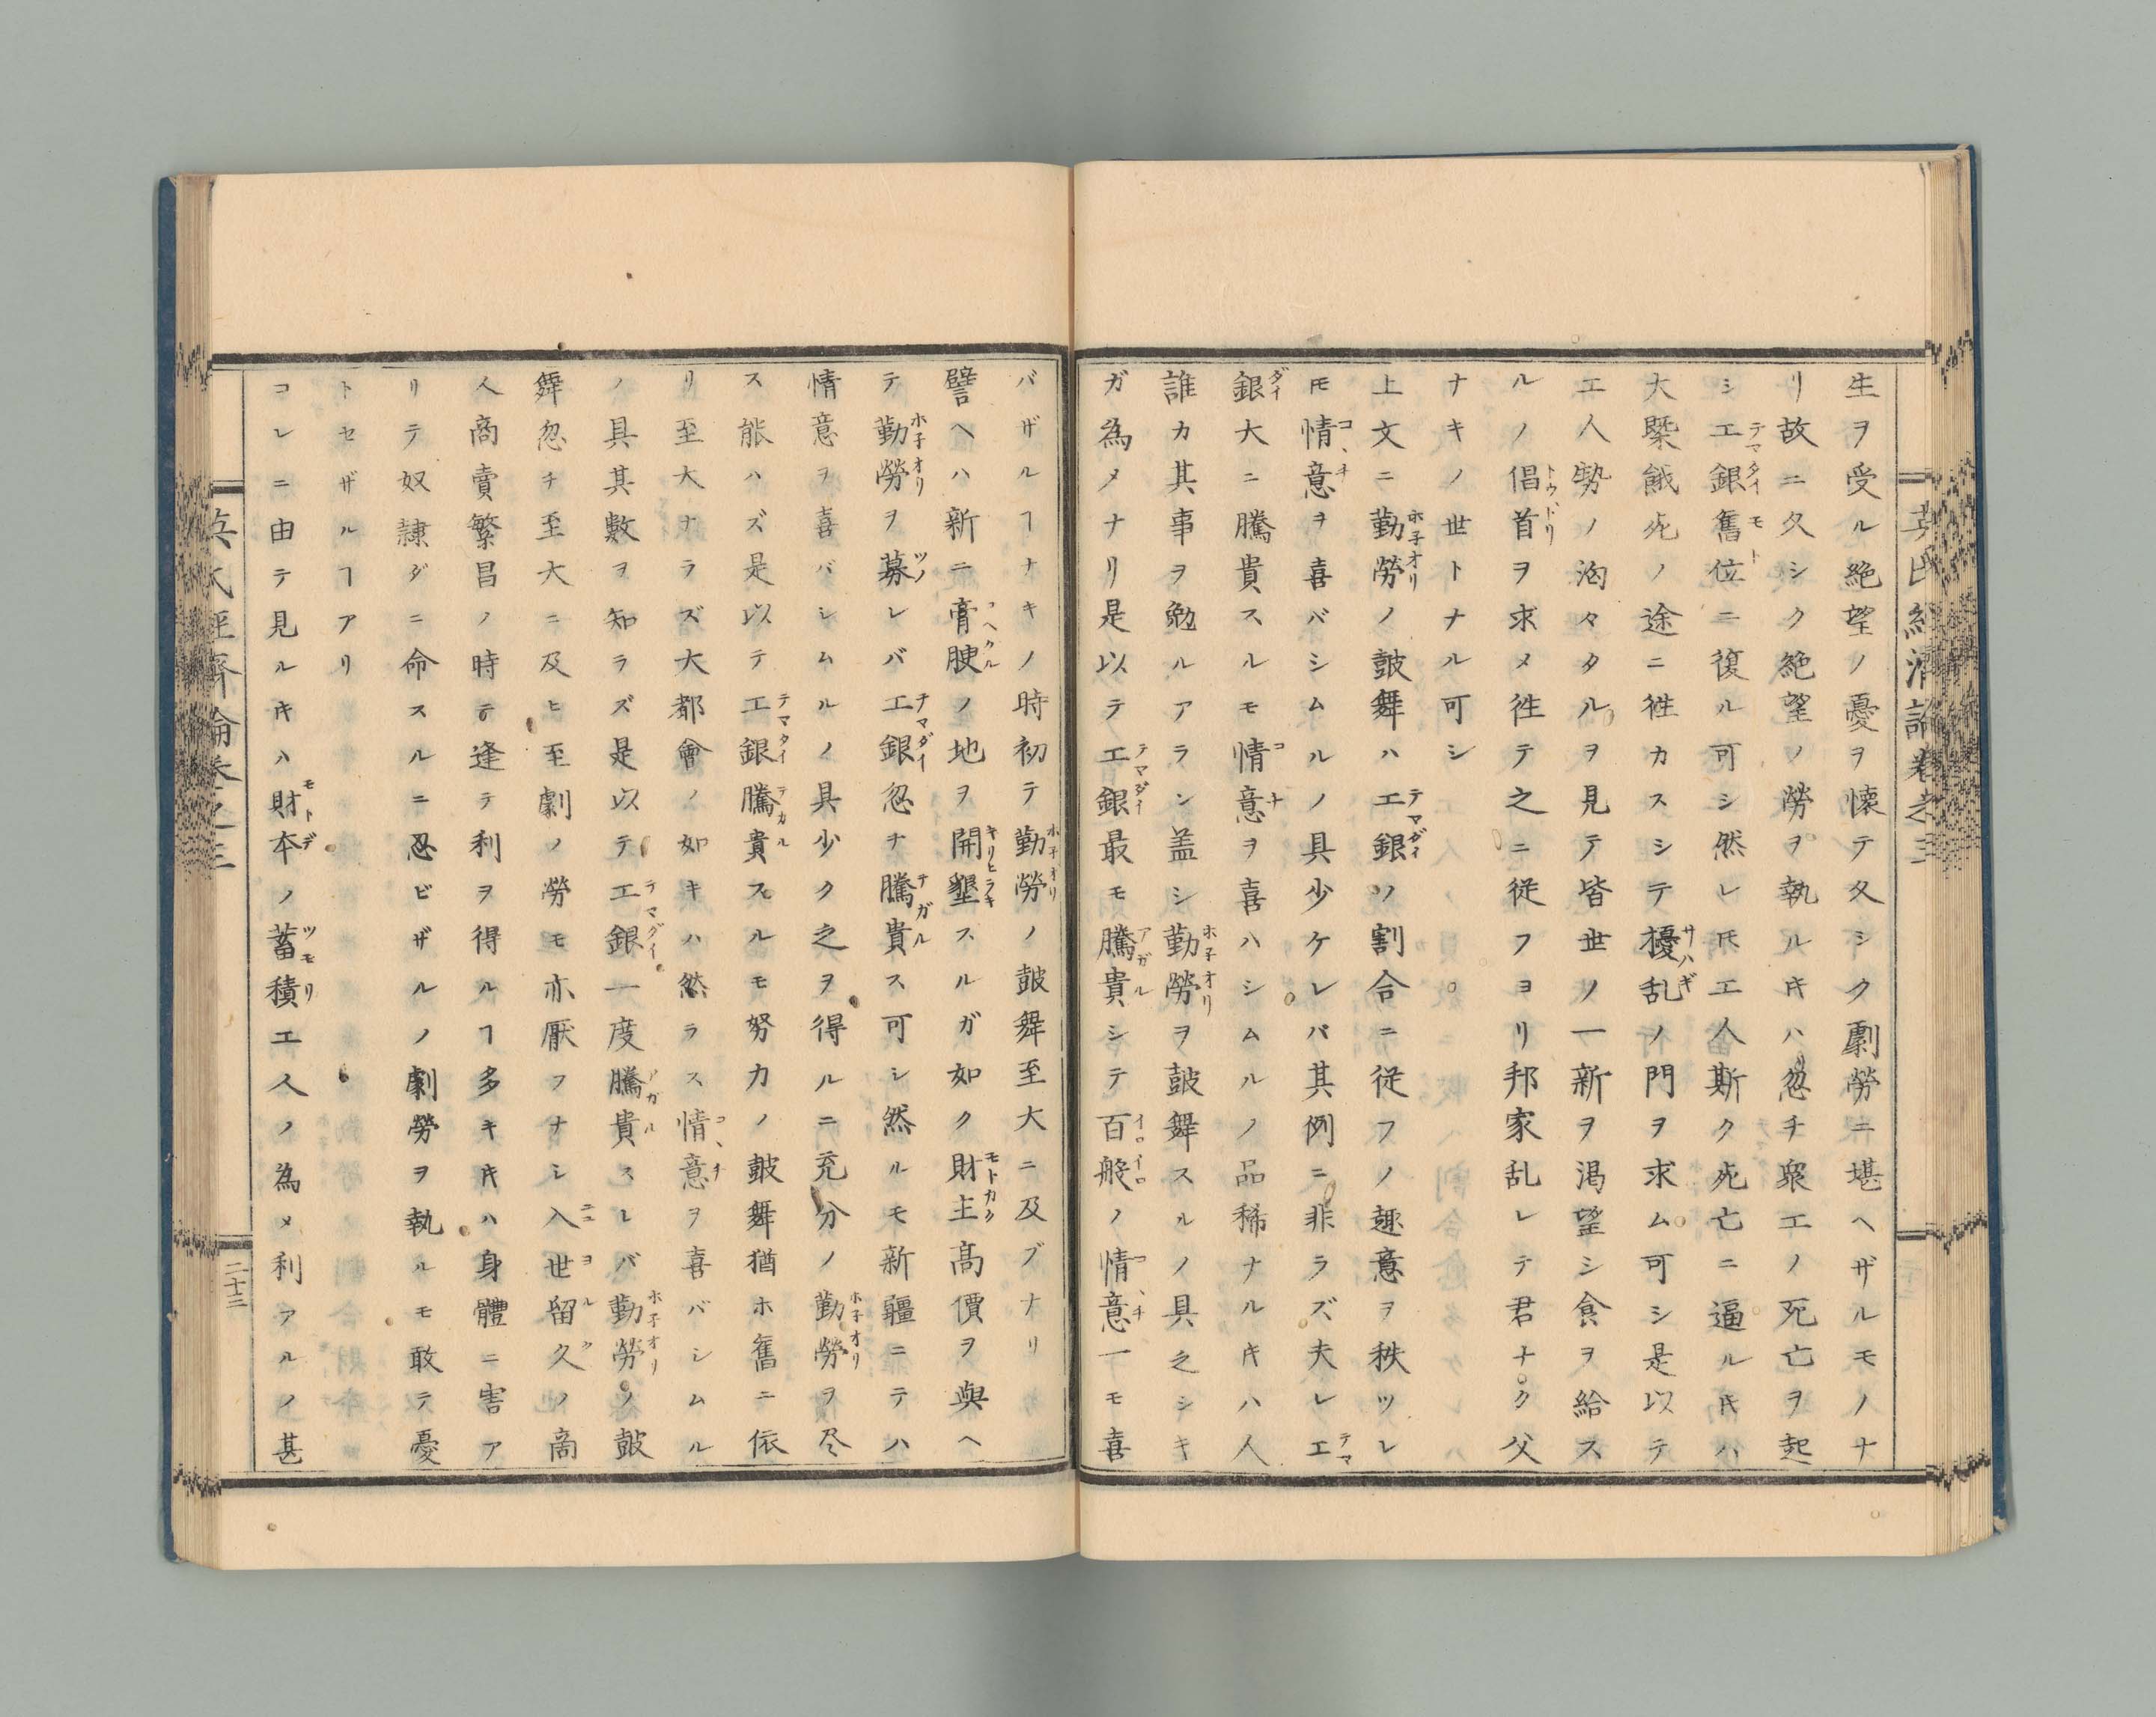 生ヲ受ル絶望ノ憂ヲ懐テ久シク劇勞ニ堪ヘザルモノナ
リ故ニ久シク絶望ノ勞ヲ執ルキハ忽チ衆工ノ死亡ヲ起
シ工銀舊位ニ復ル可シ然レ𪜈工人斯ク死亡ニ逼ルキハ
大槩餓死ノ途ニ徃カスシテ擾乱ノ門ヲ求ム可シ是以テ
工人勢ノ洶々タルヲ見テ皆世ノ一新ヲ渇望シ食ヲ給ス
ルノ倡首ヲ求メ徃テ之ニ従フヨリ邦家乱レテ君ナク父
ナキノ世トナル可シ
上文ニ勤勞ノ皷舞ハ工銀ノ割合ニ従フノ趣意ヲ秩ツレ
𪜈情意ヲ喜バシムルノ具少ケレバ其例ニ非ラズ夫レ工
銀大ニ騰貴スルモ情意ヲ喜ハシムルノ品稀ナルキハ人
誰カ其事ヲ勉ルアラン盖シ勤勞ヲ皷舞スルノ具之シキ
ガ為メナリ是以テ工銀最モ騰貴シテ百般ノ情意一モ喜
バザルヿナキノ時初テ勤勞ノ皷舞至大ニ及ブナリ
譬ヘハ新ニ膏腴ノ地ヲ開墾スルガ如ク財主高價ヲ與ヘ
テ勤勞ヲ募レバ工銀忽チ騰貴ス可シ然ルモ新疆ニテハ
情意ヲ喜バシムルノ具少ク之ヲ得ルニ充分ノ勤勞ヲ尽
ス能ハズ是以テ工銀騰貴スルモ努力ノ皷舞猶ホ舊ニ依
リ至大ナラズ大都會ノ如キハ然ラス情意ヲ喜バシムル
ノ具其數ヲ知ラズ是以テ工銀一度騰貴スレバ勤勞ノ皷
舞忽チ至大ニ及ヒ至劇ノ勞モ亦厭フナシ入世留久ノ商
人商賣繁昌ノ時ニ逢テ利ヲ得ルヿ多キキハ身體ニ害ア
リテ奴隷ダニ命スルニ忍ビザルノ劇勞ヲ執ルモ敢テ憂
トセザルヿアリ
コレニ由テ見ルキハ財本ノ蓄積工人ノ為メ利アルノ甚
英氏經濟論卷之三
二十三